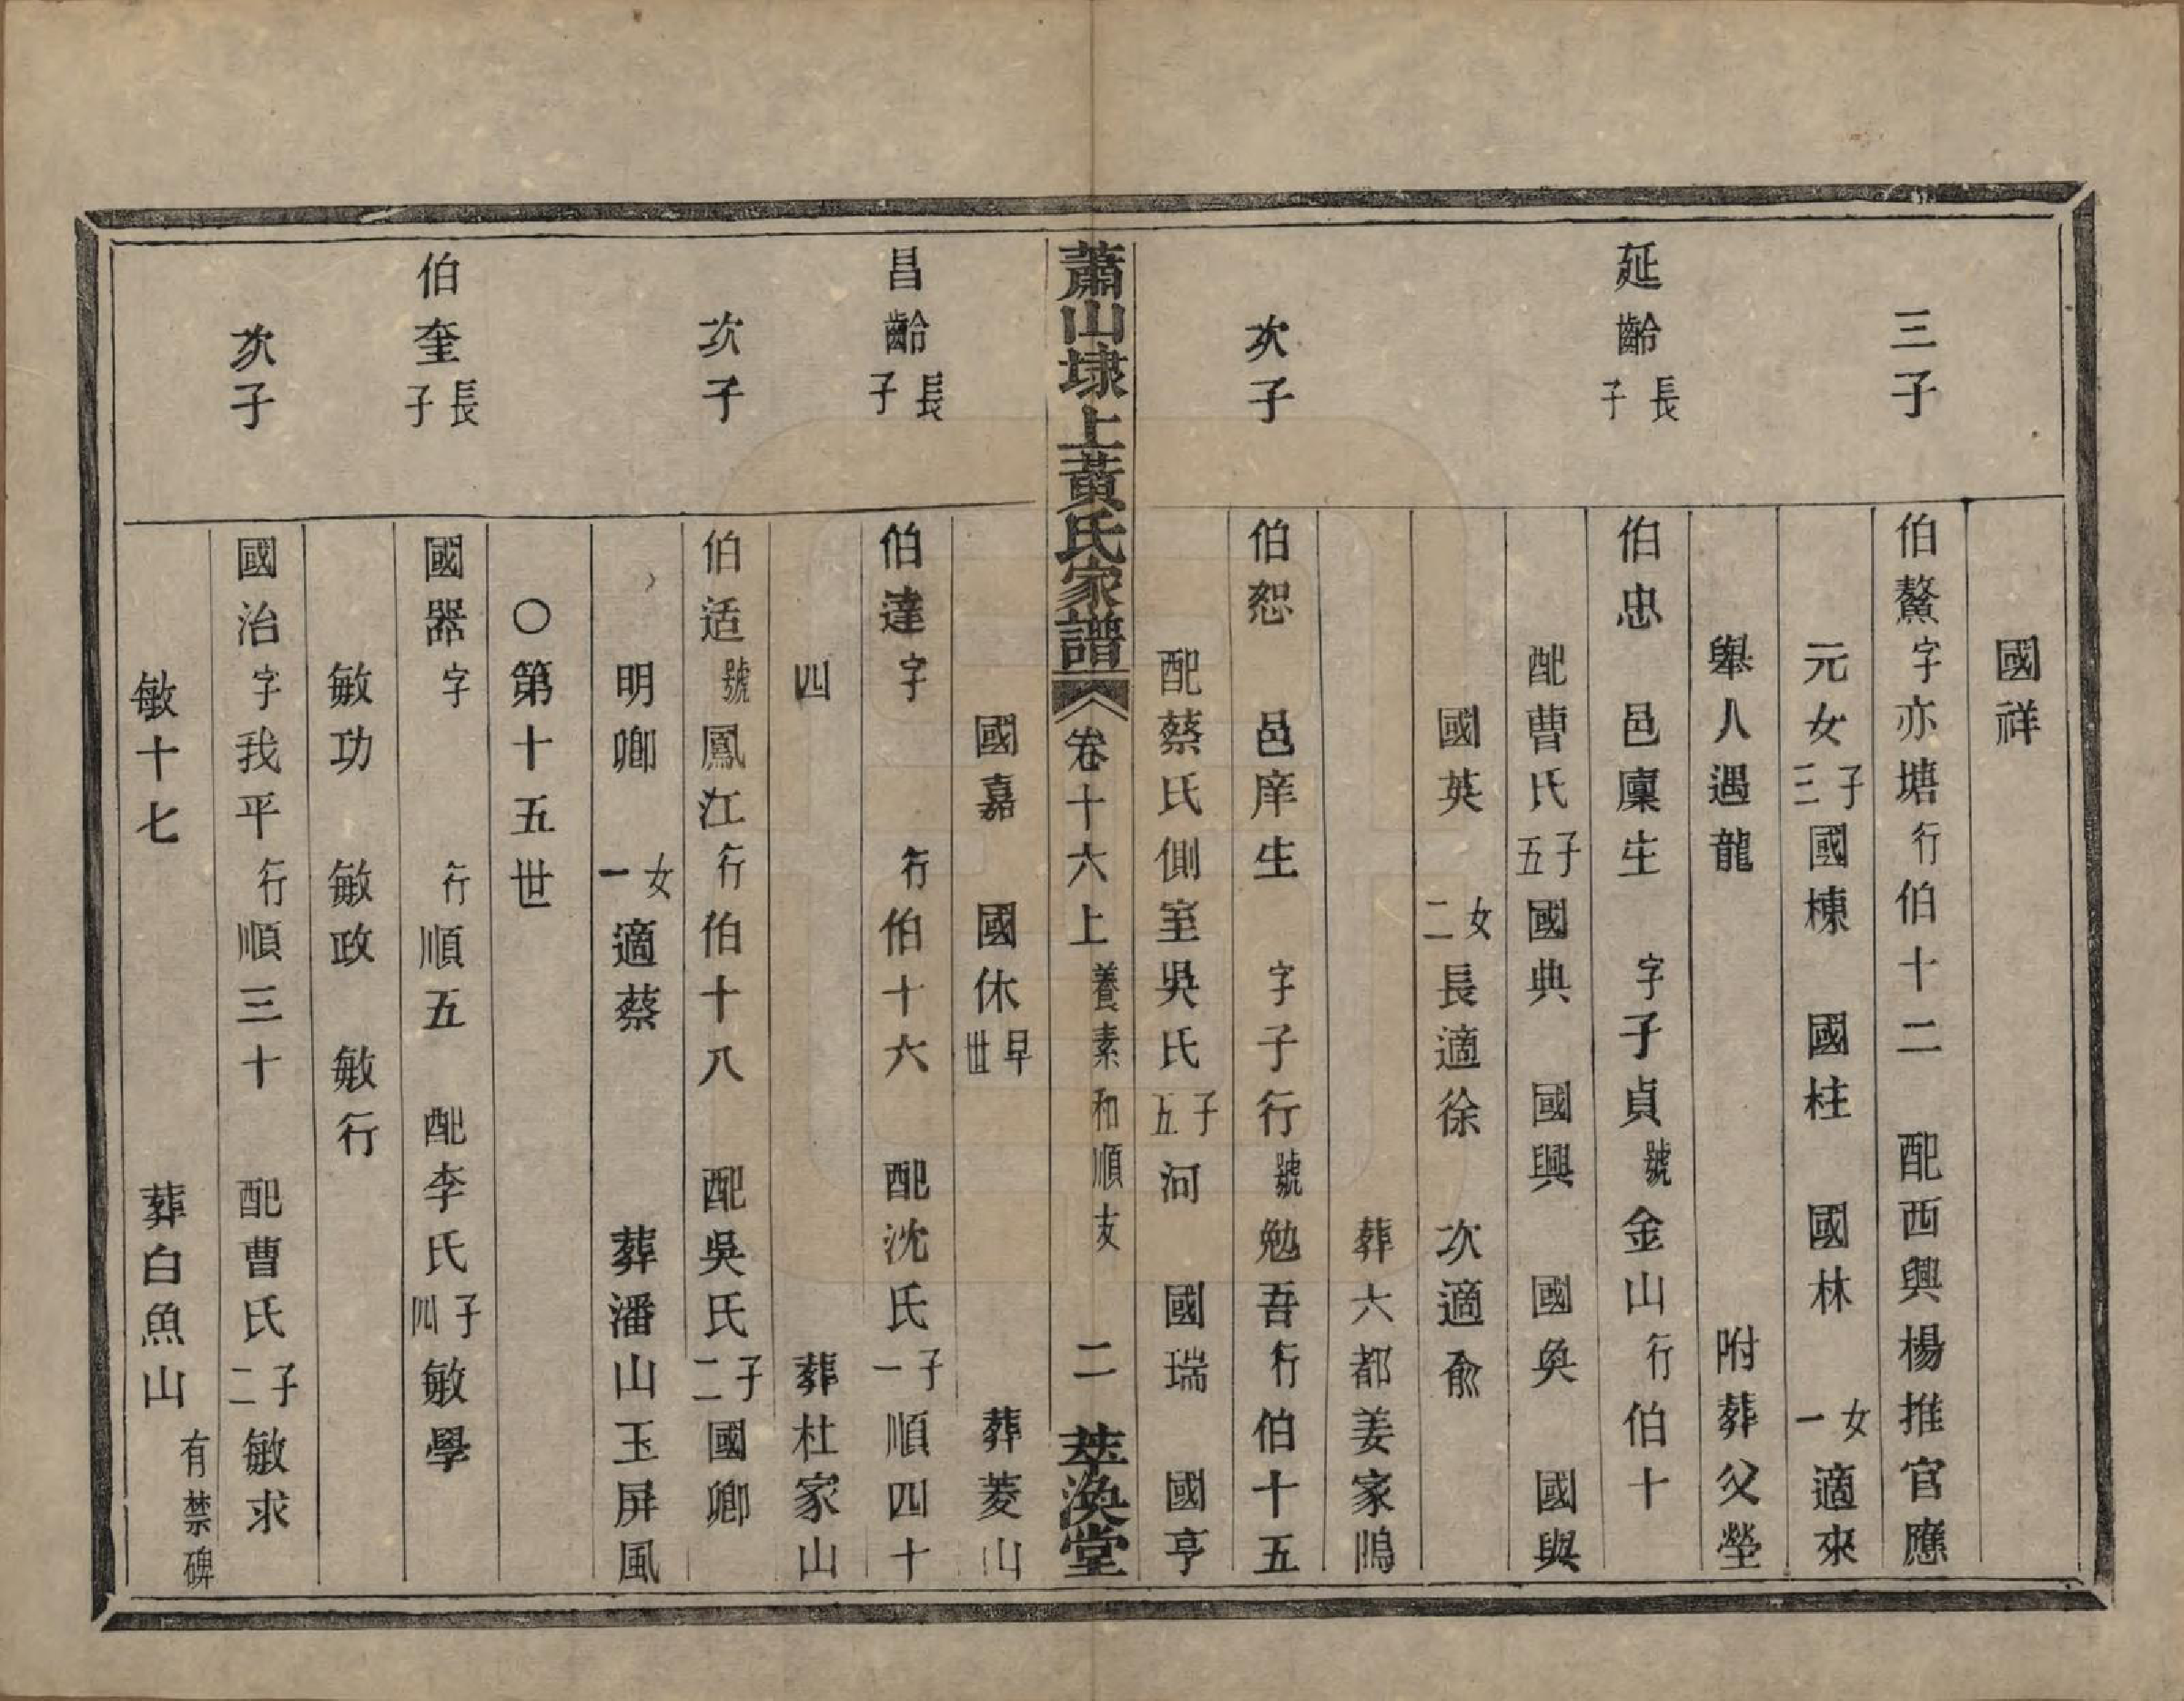 國祥
三子
伯鰲字亦塘行伯十二　配西興楊推官應
元女子三國棟　國柱　國林　女一適來
舉人遇龍　附葬父塋
延齡長子
伯忠　邑廩生　字子貞號金山行伯十
配曹氏子五國典　國興　國奐　國與
國英　女二長適徐　次適俞
葬六都姜家隖
次子
伯恕　邑庠生　字子行號勉吾行伯十五
配蔡氏側室吳氏子五河　國瑞　國亨
蕭山埭上黃氏家譜　卷十六上　養素和順支　二　萃渙堂
國嘉　國休早世　葬菱山
昌齡長子
伯達字　行伯十六　配沈氏子一順四十
四　葬杜家山
次子
伯适號鳳江行伯十八　配吳氏子二國卿
明卿　女一適蔡　葬潘山玉屏風
○第十五世
伯奎長子
國器字　行順五　配李氏子四敏學
敏功　敏政　敏行
次子
國治字我平行順三十　配曹氏子二敏求
敏十七　葬白魚山有禁碑